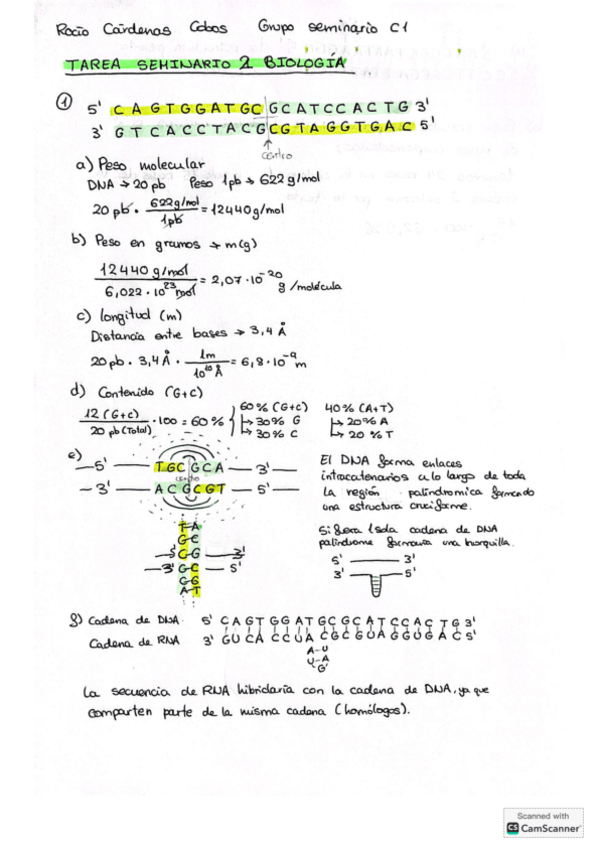 Rocío Cárdenas Cobos Grupo seminario C1
TAREA SEMINARIO 2 BIOLOGÍA
① 5' C A G T G G A T G C G C A T C C A C T G 3'
3' G T C A C C T A C G C G T A G G T G A C 5'
↑
centro
a) Peso molecular
DNA → 20 pb Peso 1pb → 622 g/mol
20 pb · 622g/mol / 1pb = 12440 g/mol
b) Peso en gramos → m(g)
12440 g/mol / 6,022 · 10²³ mol = 2,07 · 10⁻²⁰ g/molécula
c) longitud (m)
Distancia entre bases → 3,4 Å
20 pb · 3,4 Å · 1m / 10¹⁰ Å = 6,8 · 10⁻⁹ m
d) Contenido (G+C)
12 (G+C) / 20 pb (Total) · 100 = 60% 60% (G+C) 40% (A+T)
↳ 30% G ↳ 20% A
↳ 30% C ↳ 20% T
e) —5' — T G C G C A — 3' —
centro
— 3' — A C G C G T — 5' —
T-A
G C
—5' C G — 3'
—3' G C — 5'
C G
A T
El DNA forma enlaces
intracatenarios a lo largo de toda
la región palindromica formando
una estructura cruciforme.
Si fuera 1 sola cadena de DNA
palíndrome formaría una horquilla.
5' — 3'
3' — 5'
f) Cadena de DNA 5' C A G T G G A T G C G C A T C C A C T G 3'
Cadena de RNA 3' G U C A C C U A C G C G U A G G U G A C 5'
A-U
U-A
G
La secuencia de RNA hibridaría con la cadena de DNA, ya que
comparten parte de la misma cadena (homólogos).
Scanned with
CS CamScanner